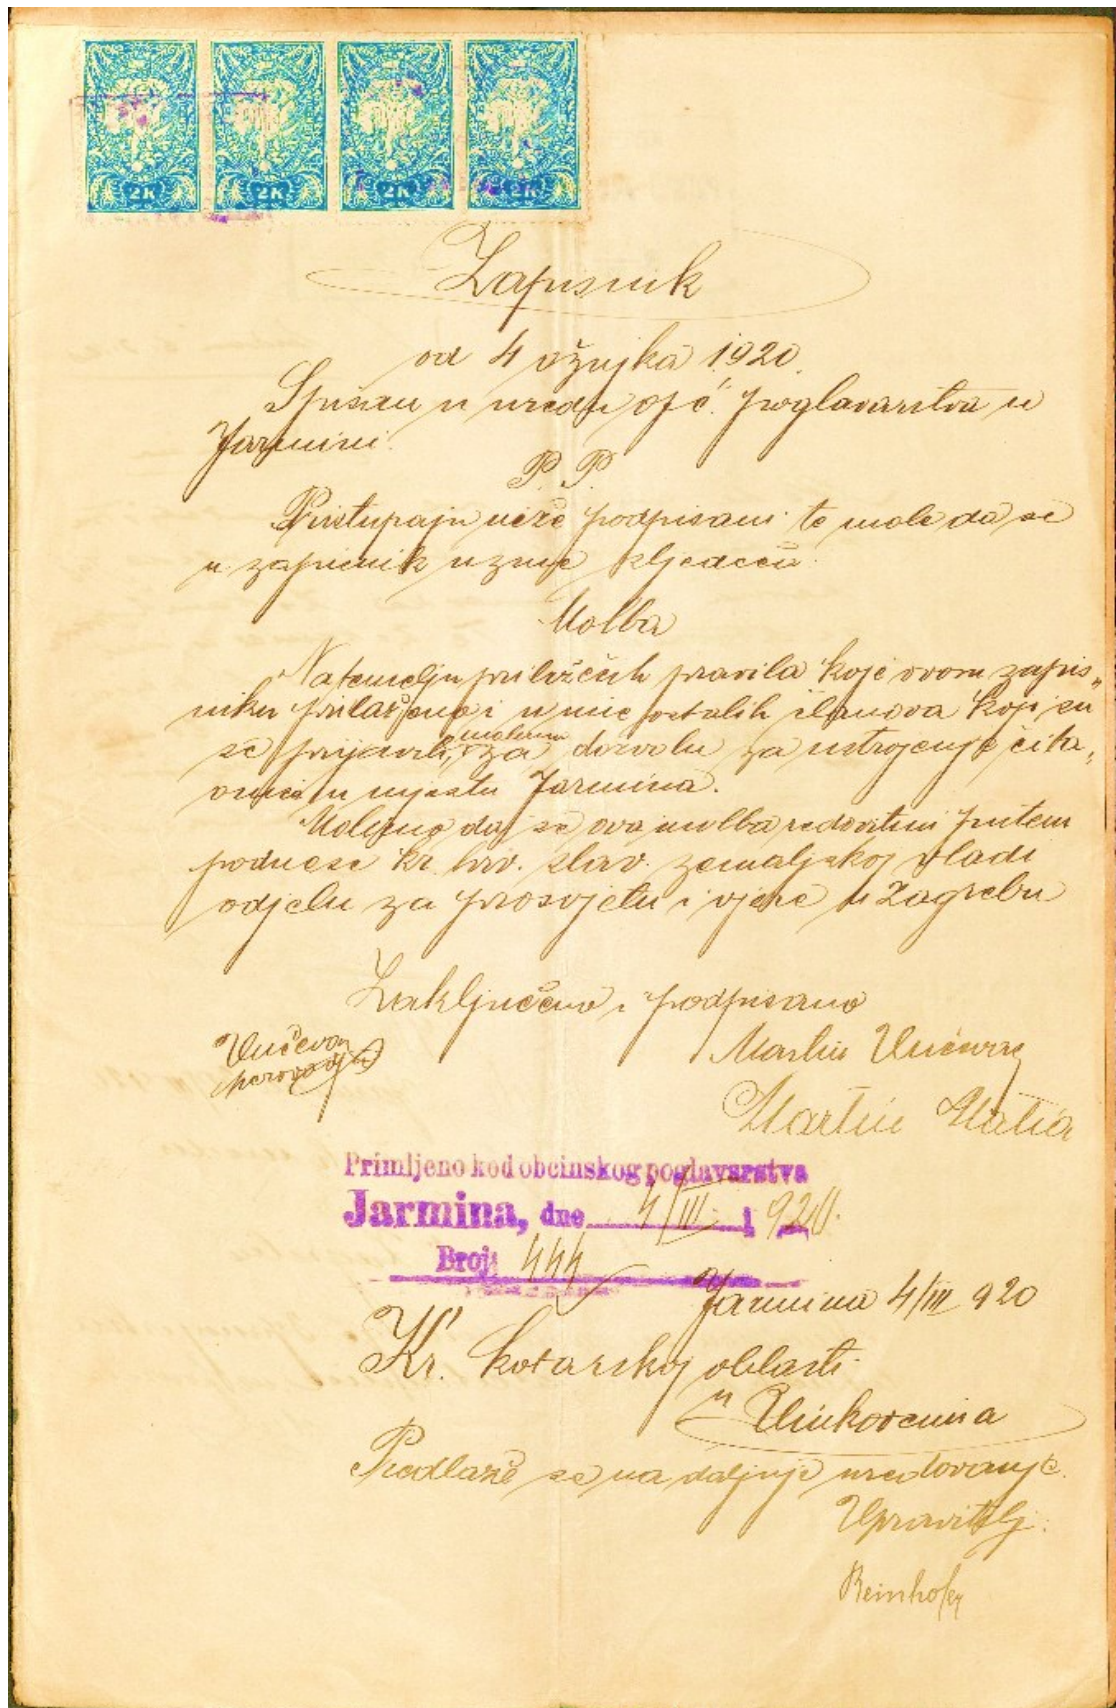 2K 2K 2K 2K
Zapisnik
od 4 ožujka 1920.
Spisan u uredu opć. poglavarstva u
Jarmini.
P. P.
Pristupaju niže podpisani te mole da se
u zapisnik uzme sljedeća
Molba
Na temelju priležećih pravila koje ovom zapis„
niku prilažemo i u ime ostalih članova koji su
se prijavili, molimo za dozvolu za ustrojenje čita„
onice u mjestu Jarmina.
Molimo da se ova molba redovitim putem
podnese kr. hrv. slav. zemaljskoj vladi
odjelu za prosvjetu i vjere u Zagrebu
Zaključeno i podpisano
Martin
Martin Matić
Primljeno kod obcinskog poglavarstva
Jarmina, dne 4/III 1920.
Broj: 444
Jarmina 4/III 920
Kr. kotarskoj oblasti
u Vinkovcima
Predlaže se na daljnje uredovanje.
Upravitelj:
Reinhofer